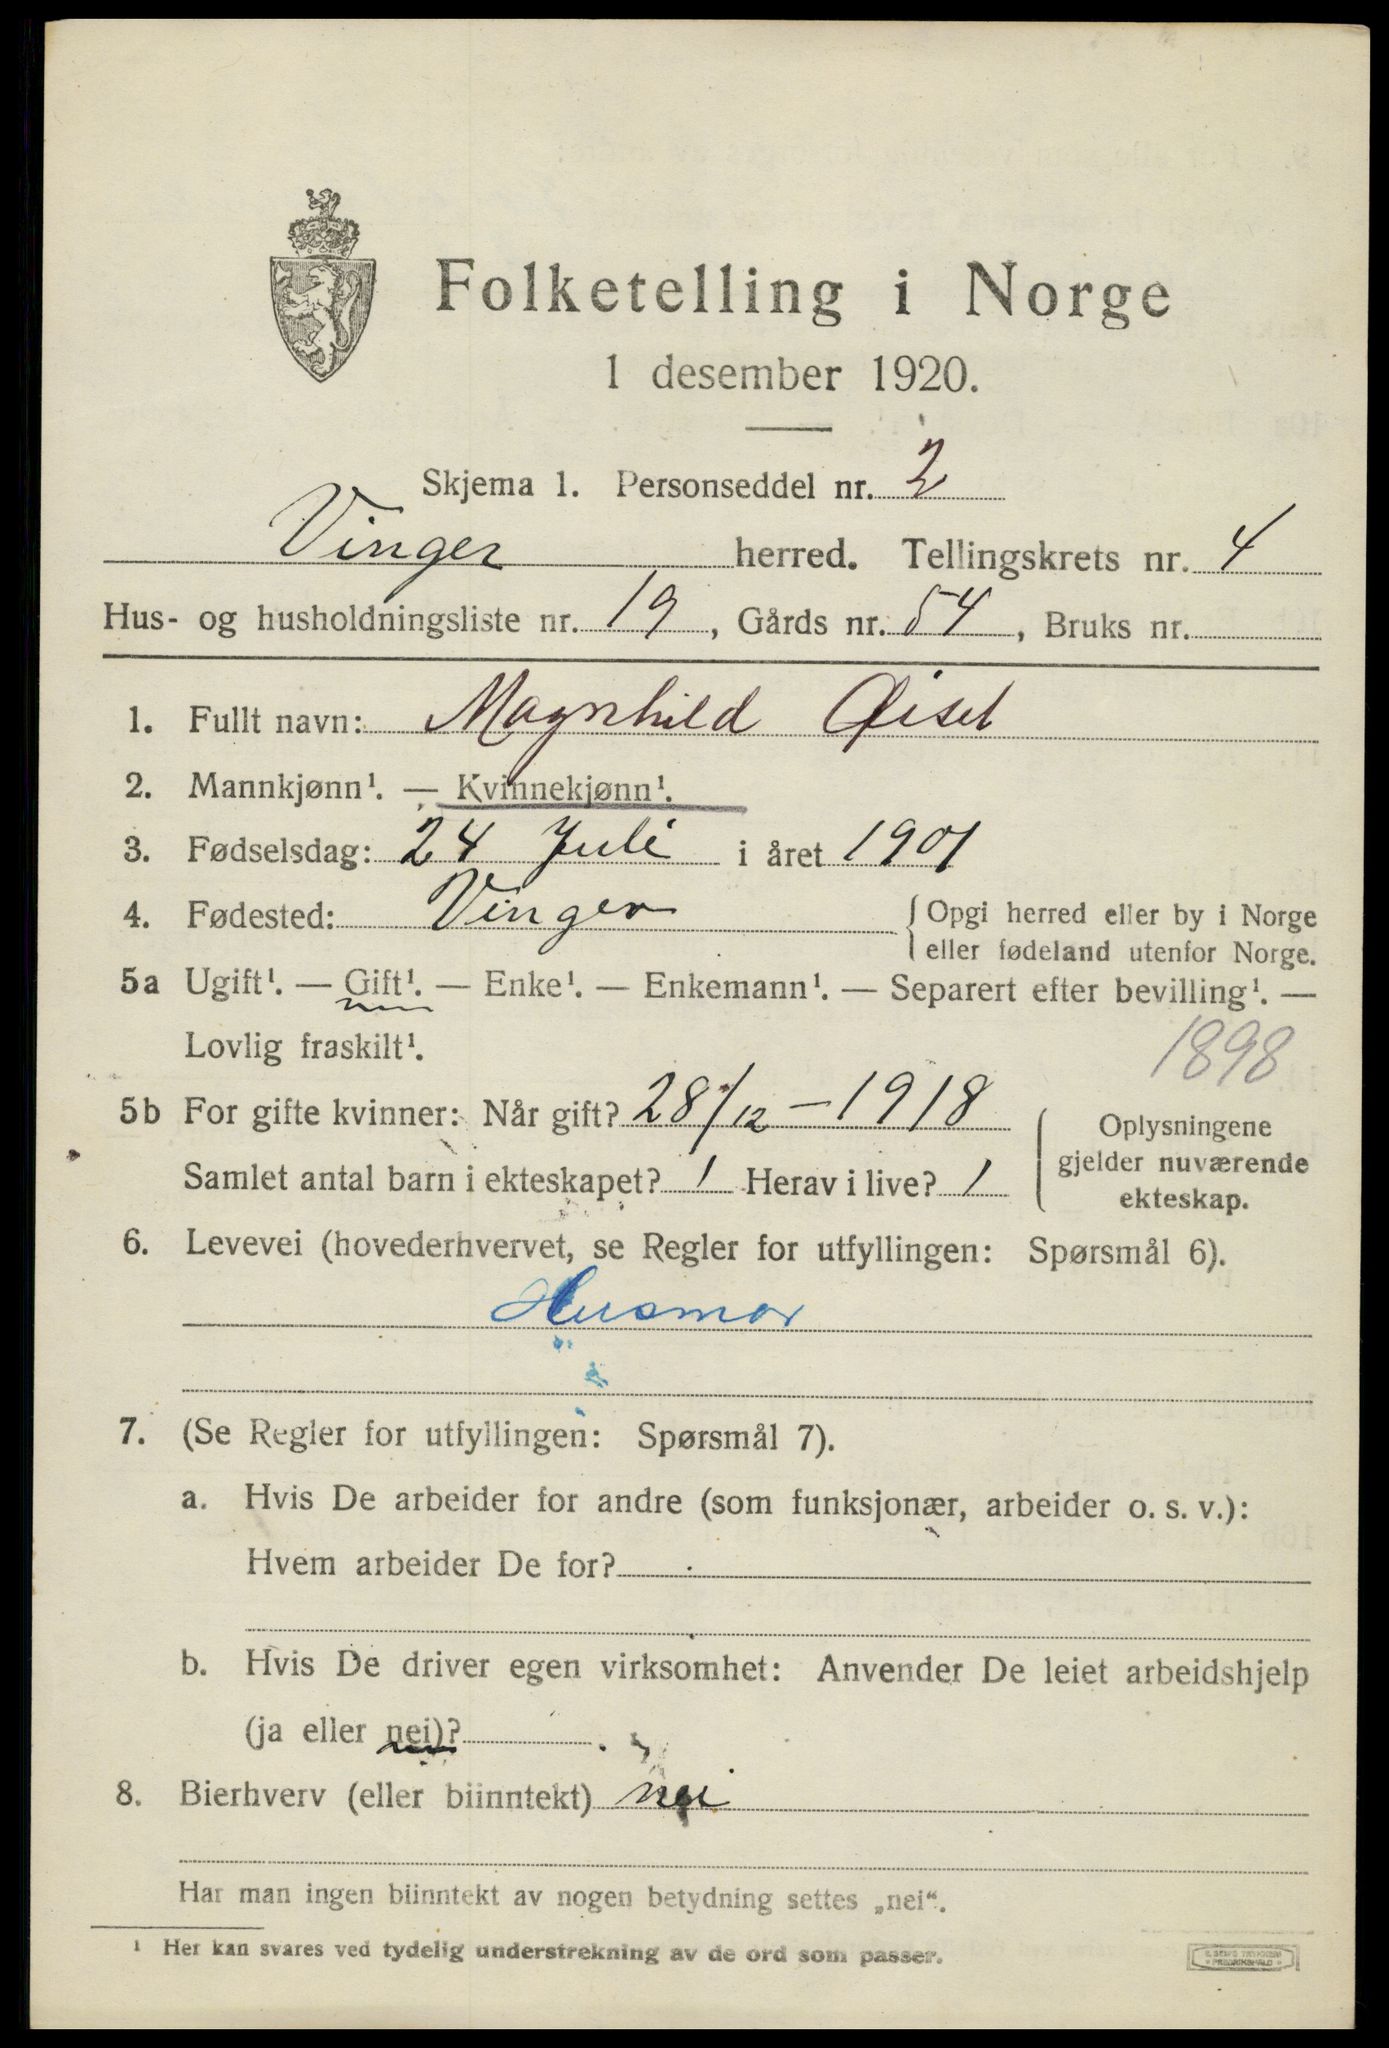 Folketelling i Norge
1 desember 1920.
Skjema 1. Personseddel nr. 2
Vinger herred. Tellingskrets nr. 4
Hus- og husholdningsliste nr. 19, Gårds nr. 54, Bruks nr.
1. Fullt navn: Magnhild Øiset
2. Mannkjønn¹. — Kvinnekjønn¹.
3. Fødselsdag: 24 Juli i året 1901
4. Fødested: Vinger { Opgi herred eller by i Norge
eller fødeland utenfor Norge.
5a Ugift¹. — Gift¹. — Enke¹. — Enkemann¹. — Separert efter bevilling¹. —
Lovlig fraskilt¹.
1898
5b For gifte kvinner: Når gift? 28/12 – 1918
Samlet antal barn i ekteskapet? 1 Herav i live? 1
Oplysningene
gjelder nuværende
ekteskap.
6. Levevei (hovederhvervet, se Regler for utfyllingen: Spørsmål 6).
Husmor
7. (Se Regler for utfyllingen: Spørsmål 7).
a. Hvis De arbeider for andre (som funksjonær, arbeider o. s. v.):
Hvem arbeider De for?
b. Hvis De driver egen virksomhet: Anvender De leiet arbeidshjelp
(ja eller nei)?
8. Bierhverv (eller biinntekt) nei
Har man ingen biinntekt av nogen betydning settes „nei“.
¹ Her kan svares ved tydelig understrekning av de ord som passer.